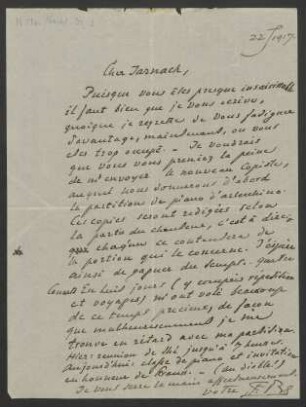 22 1917.
Cher Jarnach,
Puisque vous êtes presque insaisissable
il faut bien que je vous écrive,
quoique je regrette de vous fatiguer
davantage, maintenant, où vous
êtes trop occupé. — Je voudrais
que vous vous preniez la peine
de m'envoyer le nouveau Copiste,
auquel nous donnerons d'abord
la partition de piano d'arlecchino.
Les copies seront redigées selon
la partie du chanteur, c'est à dire:
que chacune ne contendra de
la portion qui le concerne. J'espère
ainsi de gagner du temps. Quatre
Concerts En huit jours (y compris répétitions
et voyages) m'ont volé beaucoup
de ce temps precieux, de façon
que malheureusement je me
trouve en retard avec ma partition.
Hier: reunion de thé jusqu'à 7 heures.
Aujourd'hui: classe de piano et invitation
en honneur de — (au diable!)
Je vous serre la main affectueusement.
votre F. B.